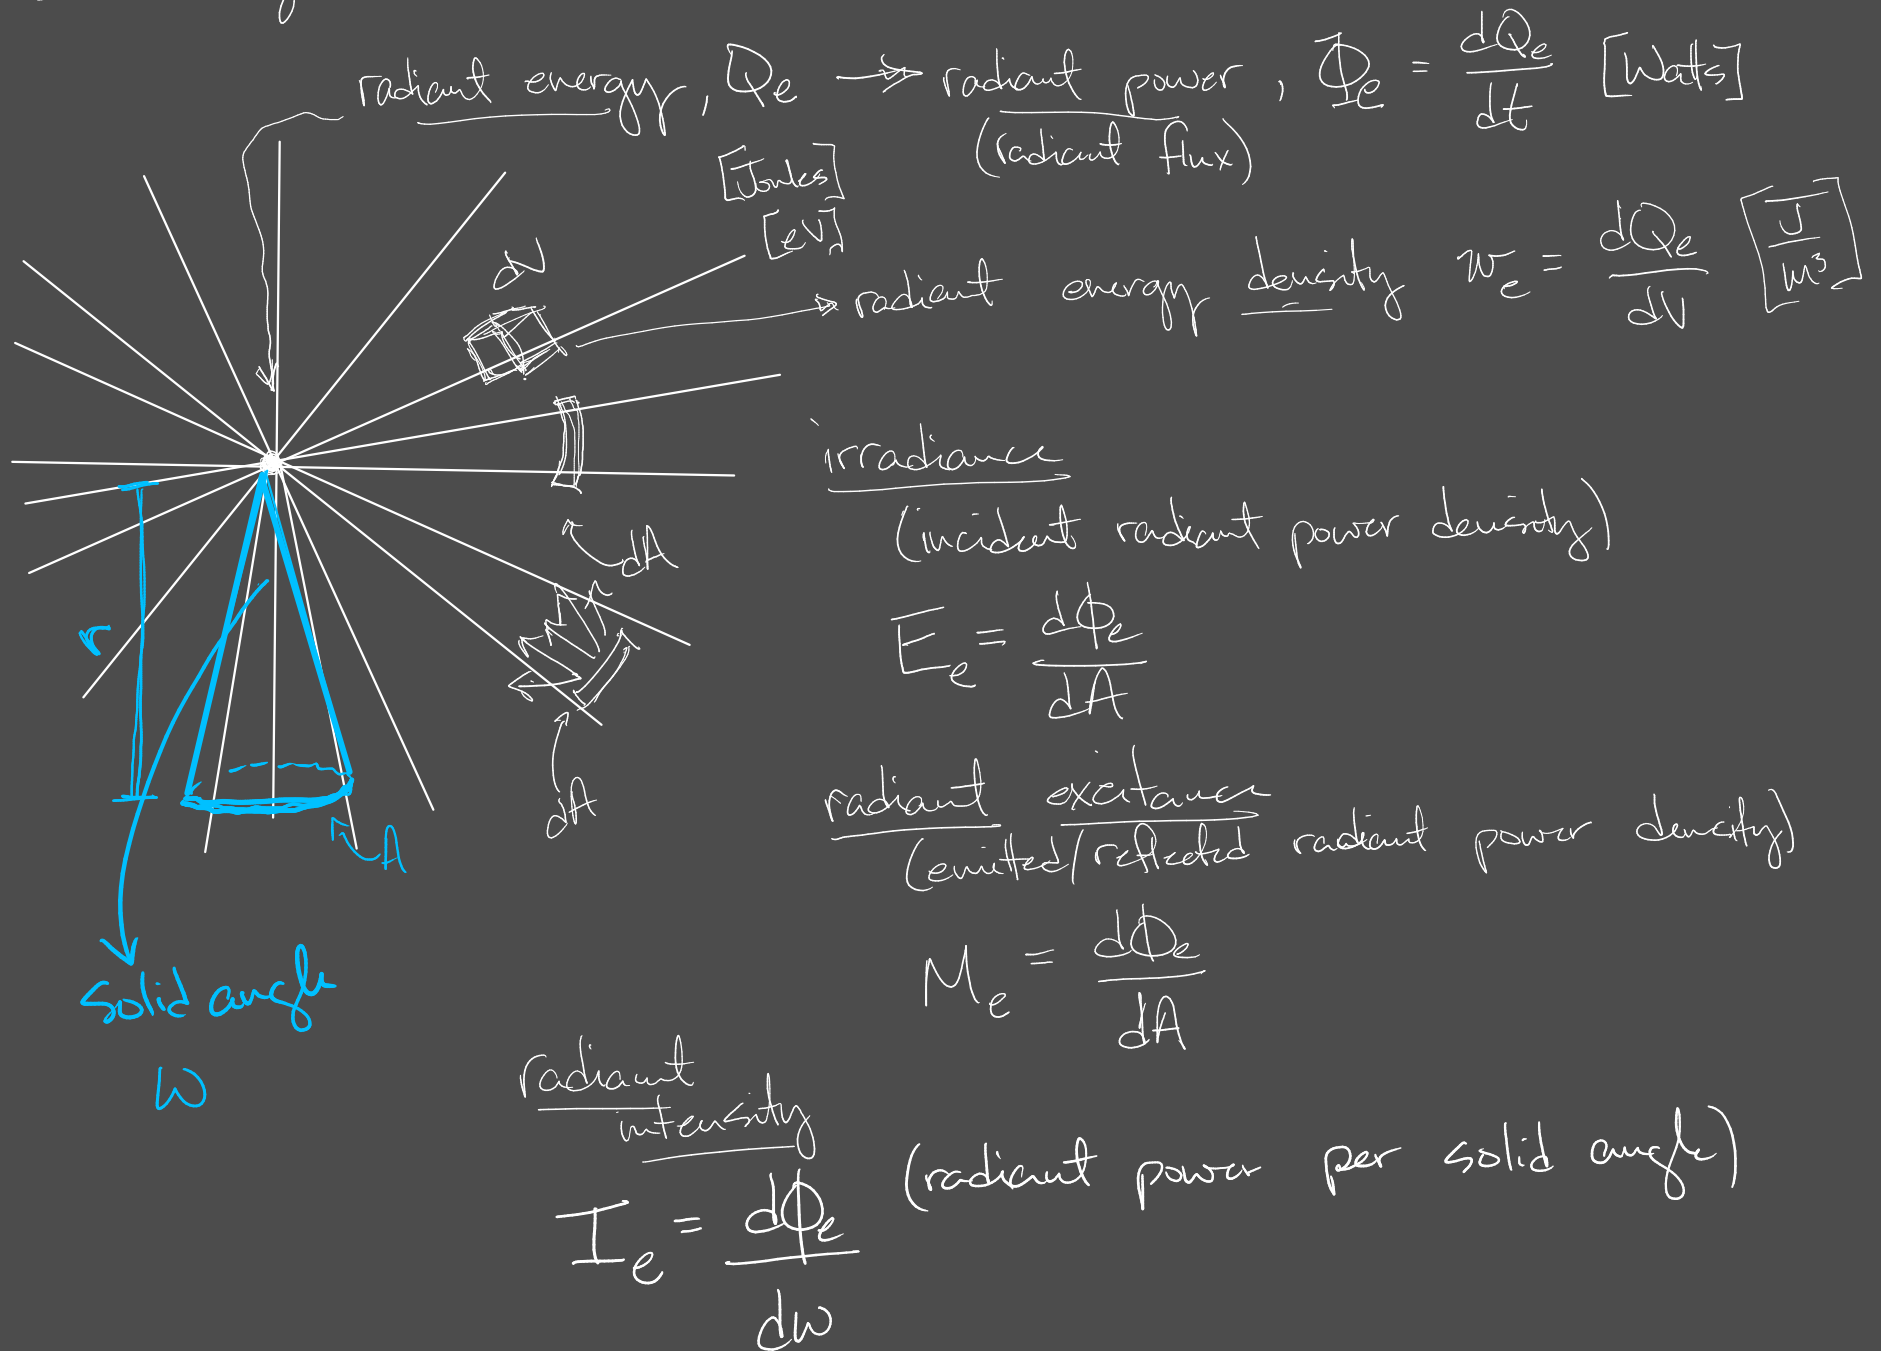 radiant energy, Qe → radiant power, Φe = dQe/dt [Watts]
(radiant flux)
[Joules]
[eV]
dV
radiant energy density we = dQe/dV [J/m³]
irradiance
(incident radiant power density)
dA
Ee = dϕe/dA
r
dA
A
radiant exitance
(emitted/reflected radiant power density)
Me = dΦe/dA
solid angle
ω
radiant
intensity
Ie = dϕe/dω (radiant power per solid angle)